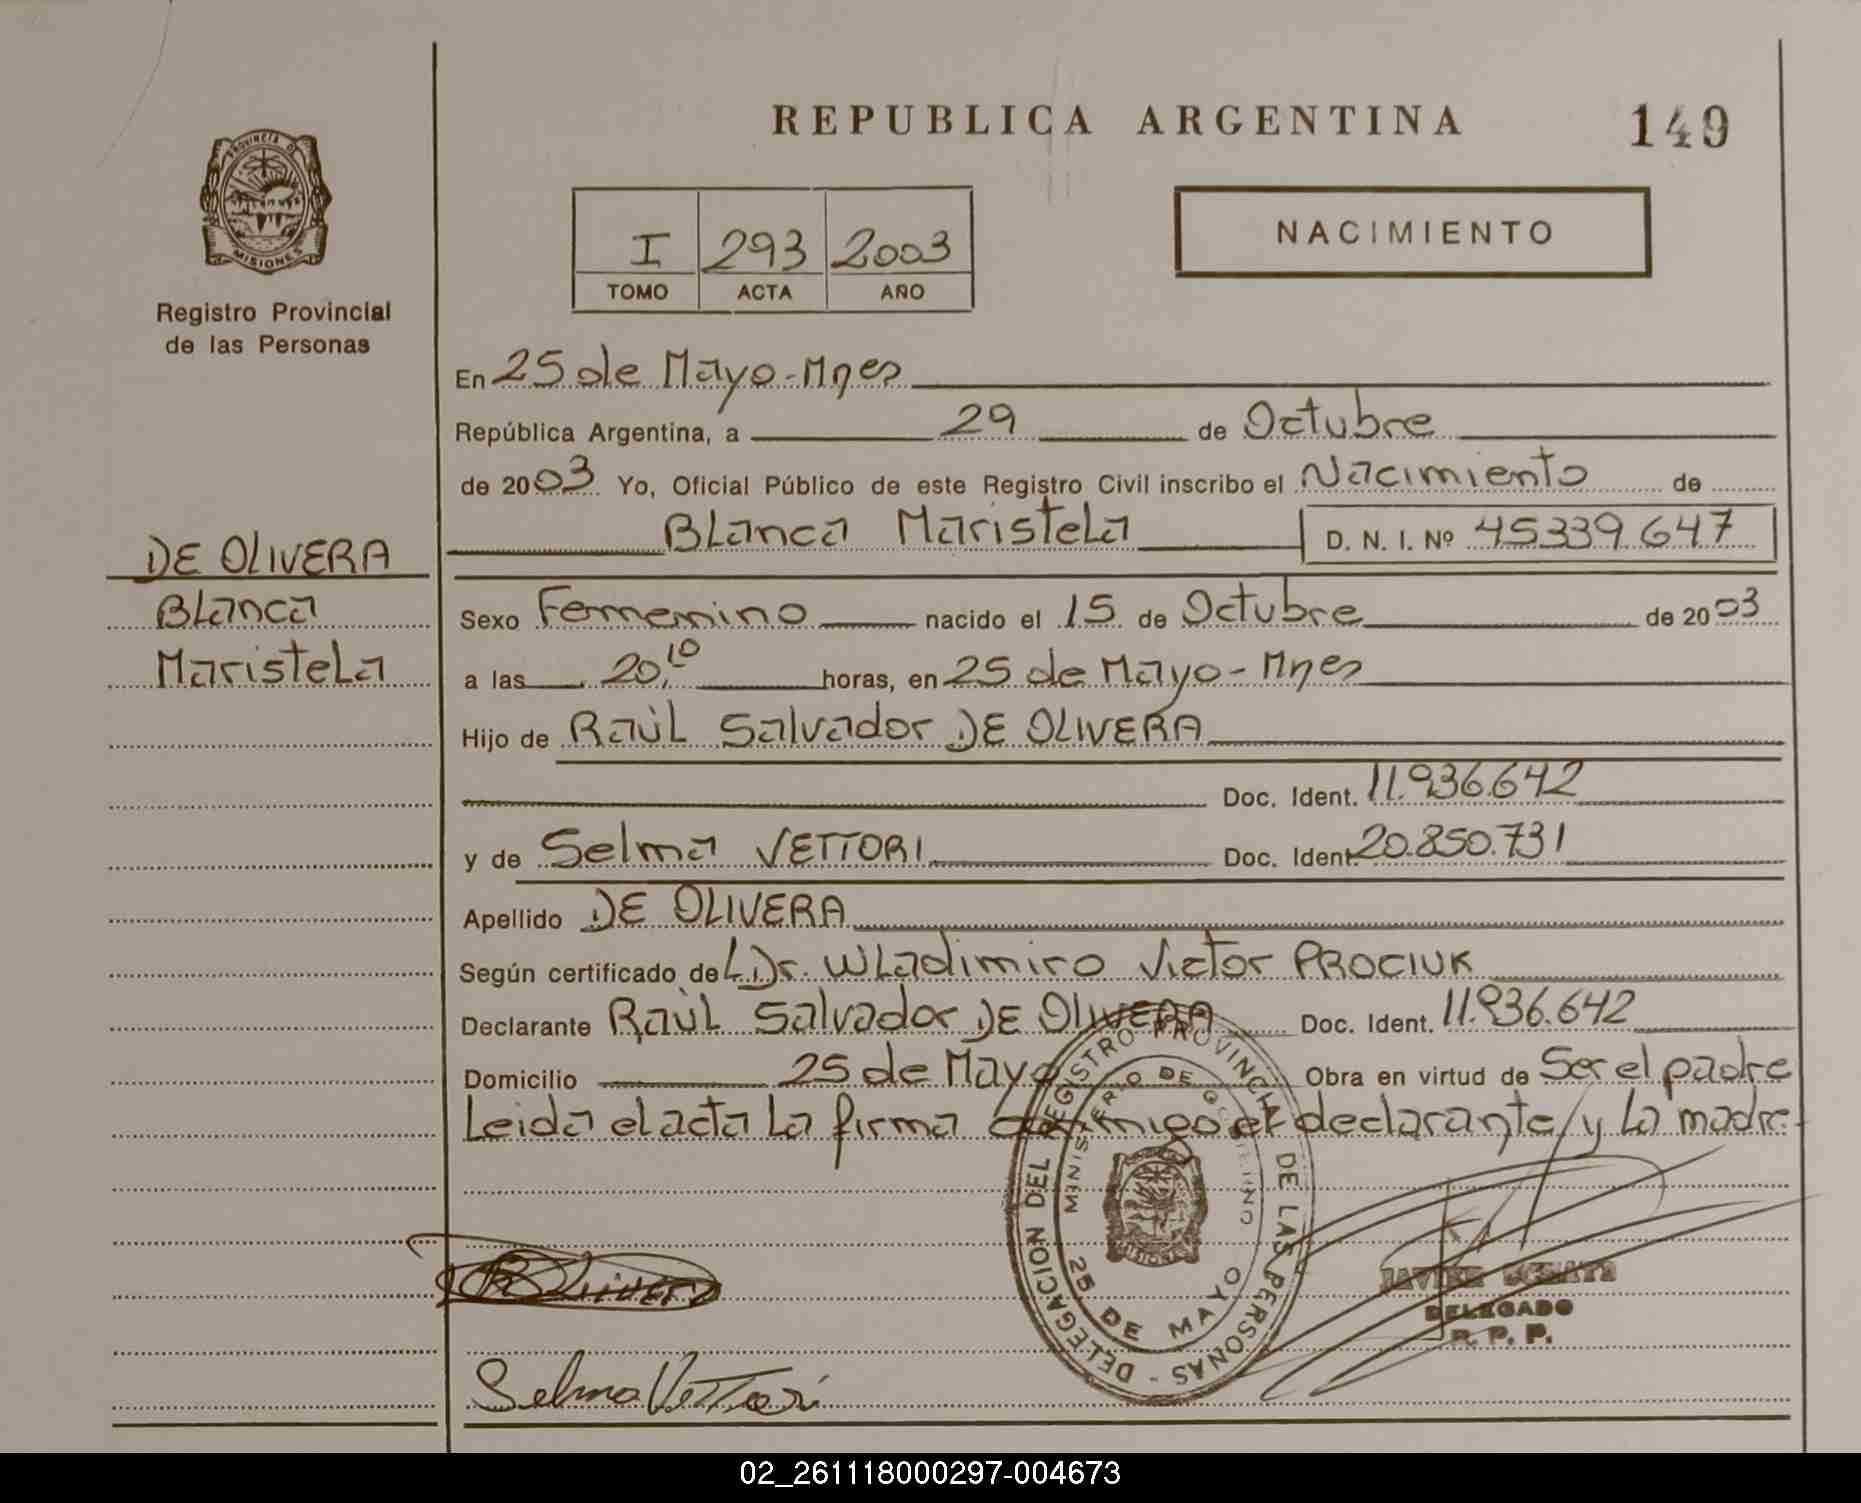 REPUBLICA ARGENTINA
149
PROVINCIA DE
MISIONES
Registro Provincial
de las Personas
I 293 2003
TOMO ACTA AÑO
NACIMIENTO
En 25 de Mayo-Mnes
República Argentina, a 29 de Octubre
de 2003 Yo, Oficial Público de este Registro Civil inscribo el Nacimiento de
Blanca Maristela D. N. I. Nº 45339.647
DE OLIVERA
Blanca
Maristela
Sexo Femenino nacido el 15 de Octubre de 2003
a las 20,10 horas, en 25 de Mayo-Mnes
Hijo de Raùl Salvador DE OLIVERA
Doc. Ident. 11.936.642
y de Selma VETTORI Doc. Ident. 20.850.731
Apellido DE OLIVERA
Según certificado del Dr. Wladimiro Victor PROCIUK
Declarante Raùl Salvador DE OLIVERA Doc. Ident. 11.936.642
Domicilio 25 de Mayo Obra en virtud de Ser el padre
Leida el acta la firma conmigo el declarante y la madre.
DELEGACION DEL REGISTRO PROVINCIAL DE LAS PERSONAS -
MINISTERIO DE GOBIERNO
25 DE MAYO
MISIONES
Olivera
JAVIER
DELEGADO
R. P. P.
Selma Vettori
02_261118000297-004673